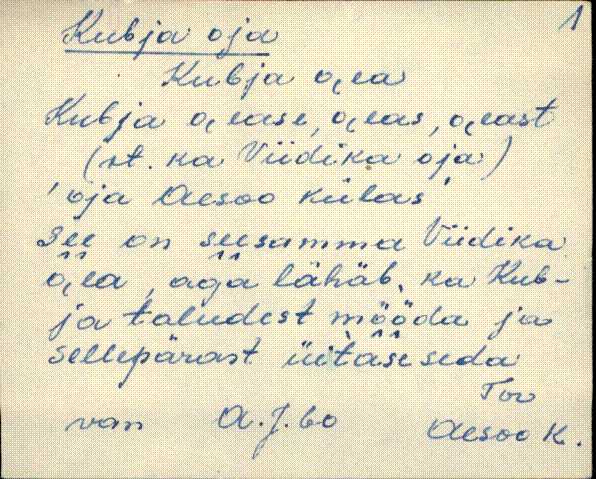 1
Kubja oja
Kubja o̭ea
Kubja o̭ease, o̭eas, o̭east
(vt. ka Viidika oja)
'oja Aesoo külas'
See on seesamma Viidika
o̭ea, aga lähäb, ka Kub-
ja taludest mööda ja
sellepärast üitäse seda
Tor
van A. J. 60 Aesoo K.